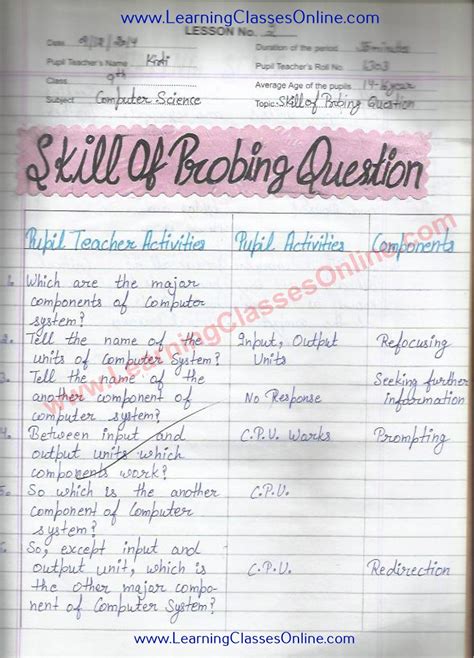 www.LearningClassesOnline.com
LESSON No. 2
Date
Duration of the period minutes
Pupil Teacher's Name Kirti
Pupil Teacher's Roll No. 6303
Class 9th
Average Age of the pupils 14-16 year
Subject Computer Science
Topic: Skill of Probing Question
Skill Of Probing Question
Pupil Teacher Activities Pupil Activities Components
1. Which are the major
components of Computer
system?
2. Tell the name of the Input, Output Refocusing
units of Computer System? Units
3. Tell the name of the Seeking further
another component of No Response information
computer system?
4. Between input and C.P.U. Works Prompting
output units which
components work?
5. So which is the another C.P.U.
component of Computer
system?
So, except input and
output unit, which is C.P.U. Redirection
the other major compo-
nent of Computer System?
www.LearningClassesOnline.com
www.LearningClassesOnline.com